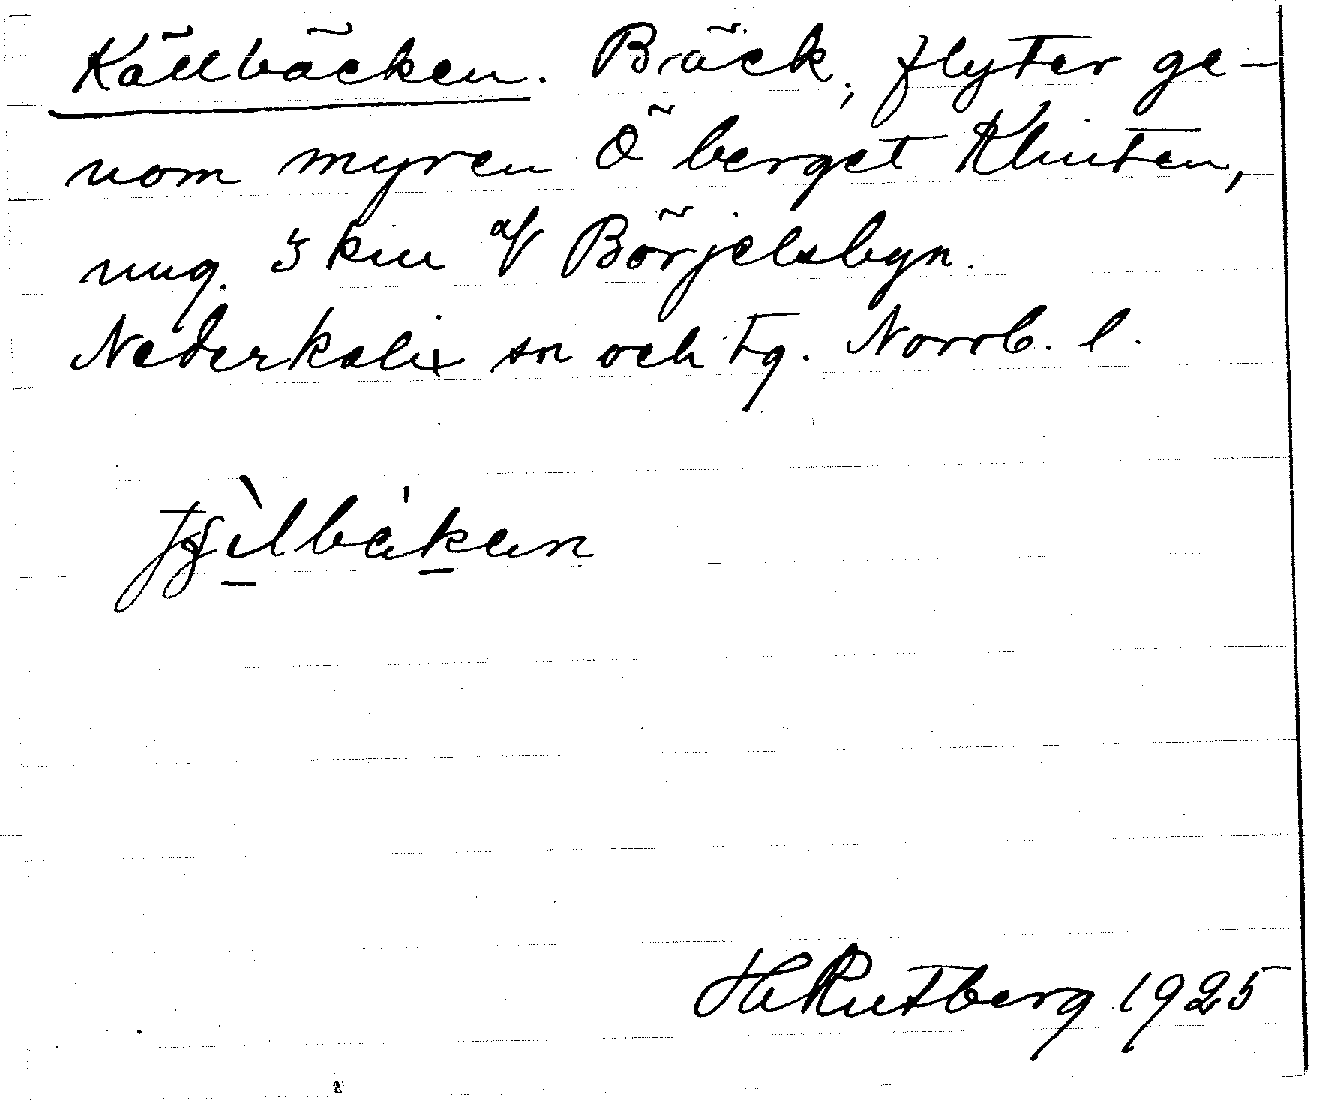 Källbäcken. Bäck, flyter ge-
nom myren Ö berget Klinten,
ung. 3 km a/V Börjelsbyn.
Nederkalix sn och tg. Norrb. l.
H Rutberg 1925